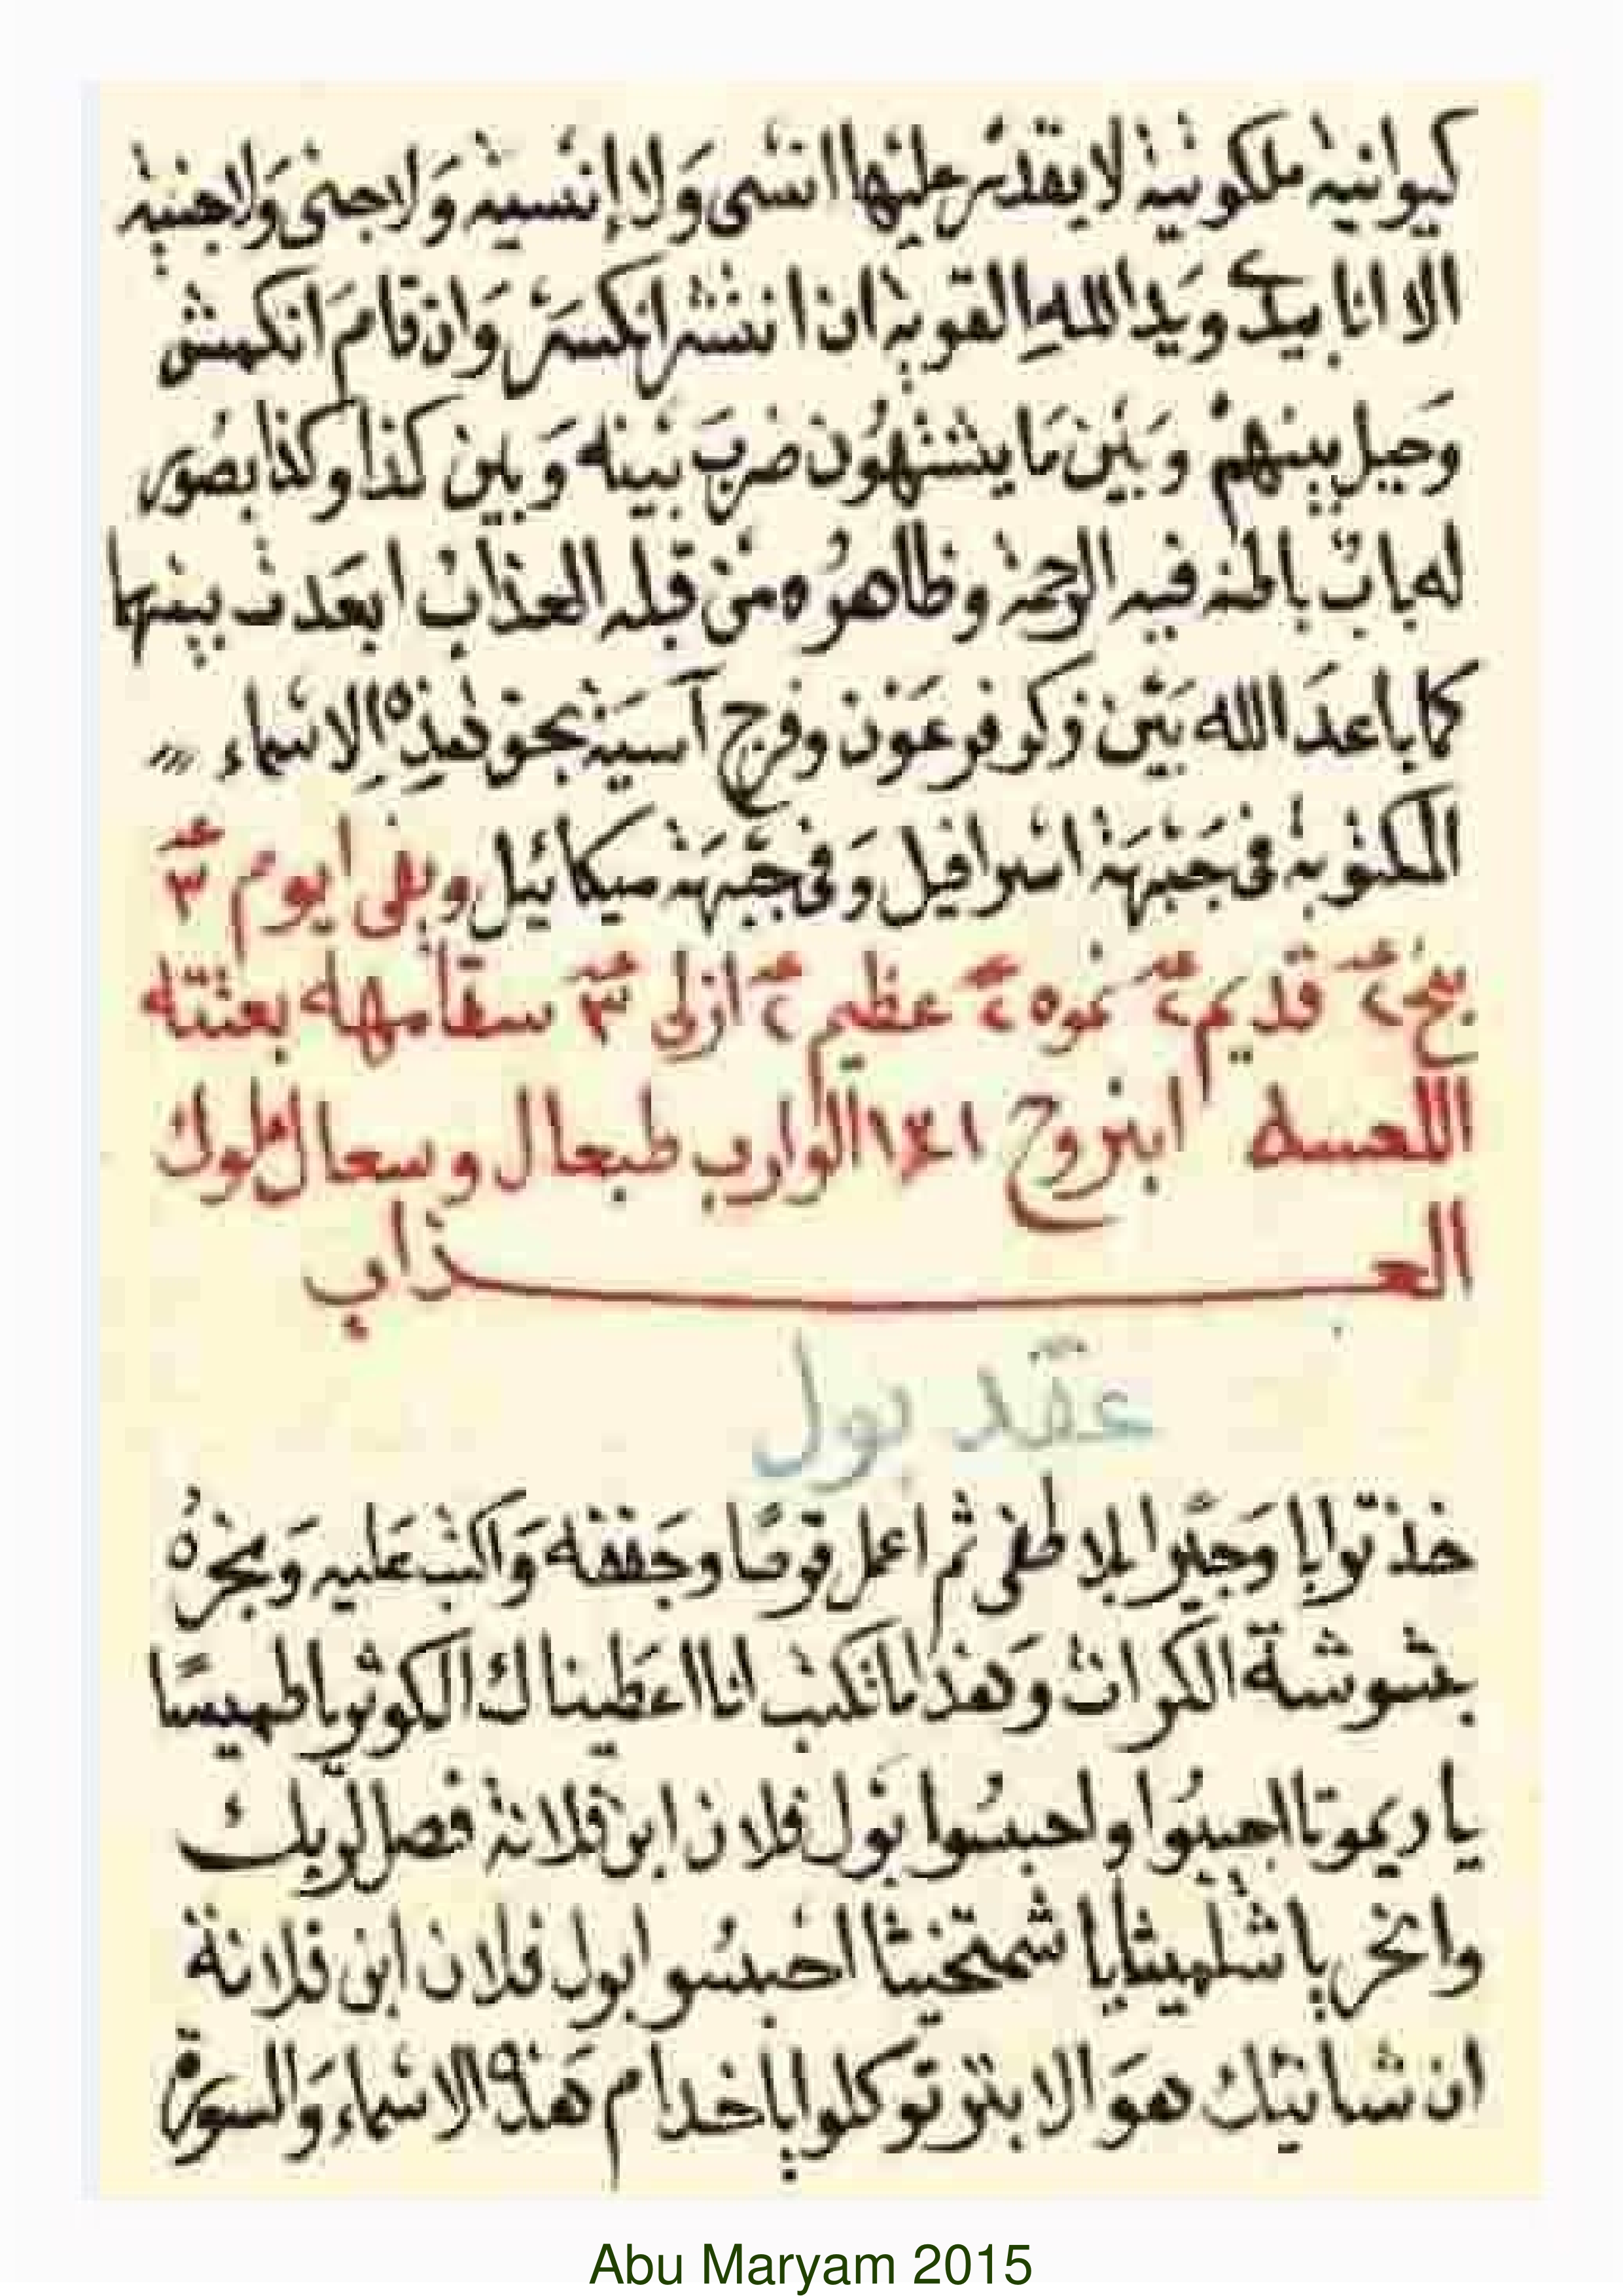 كيوانيه ملكوتية لا يقدر عليها انسى وَلا إنسية وَلا جنى وَلا جنيه
الا انا بيدى ويد الله القوية ان انتشر انكسر وَان قام انكمش
وَحيل بينهم وَبَين مَا يشتهُون ضربَ بينه وَبين كذا وكذا بصور
له باب باطنه فيه الرحمة وظاهرُه من قبله العذاب ابعَدت بينها
كما باعدَ الله بَين ذكر فرعَون وفرج آسيَة بحق هَذِه الاسماء
المكتوبة فى جَبْهَة اسرافيل وَفى جَبْهَة ميكائيل وبقى ايوم ٣
بخ ٢ قديم ٢ نموه ٢ عظيم ٢ ازلى ٣ سقامهه بعثته
اللعسه ابنروح الوارب طبعال وسعال ملوك
العـــذاب
عقد بول
خذ ترابا وَجيرا بلا طفى ثم اعمل قرصًا وجَففه وَاكتب عَليه وَبخرهُ
بشوشة الكراث وَهَذا ما تكتب انا اعطيناك الكوثر يا طهيسًا
يا ريموتا اجيبُوا واحبسُوا بَول فلان ابن فلانة فصل لربك
وانحر يا شلهيثا يا شمتخيثا احبسُوا بول فلان ابن فلانة
ان شانئك هوَ الابتر توكلوا يا خدام هَذه الاسماء وَالسورة
Abu Maryam 2015